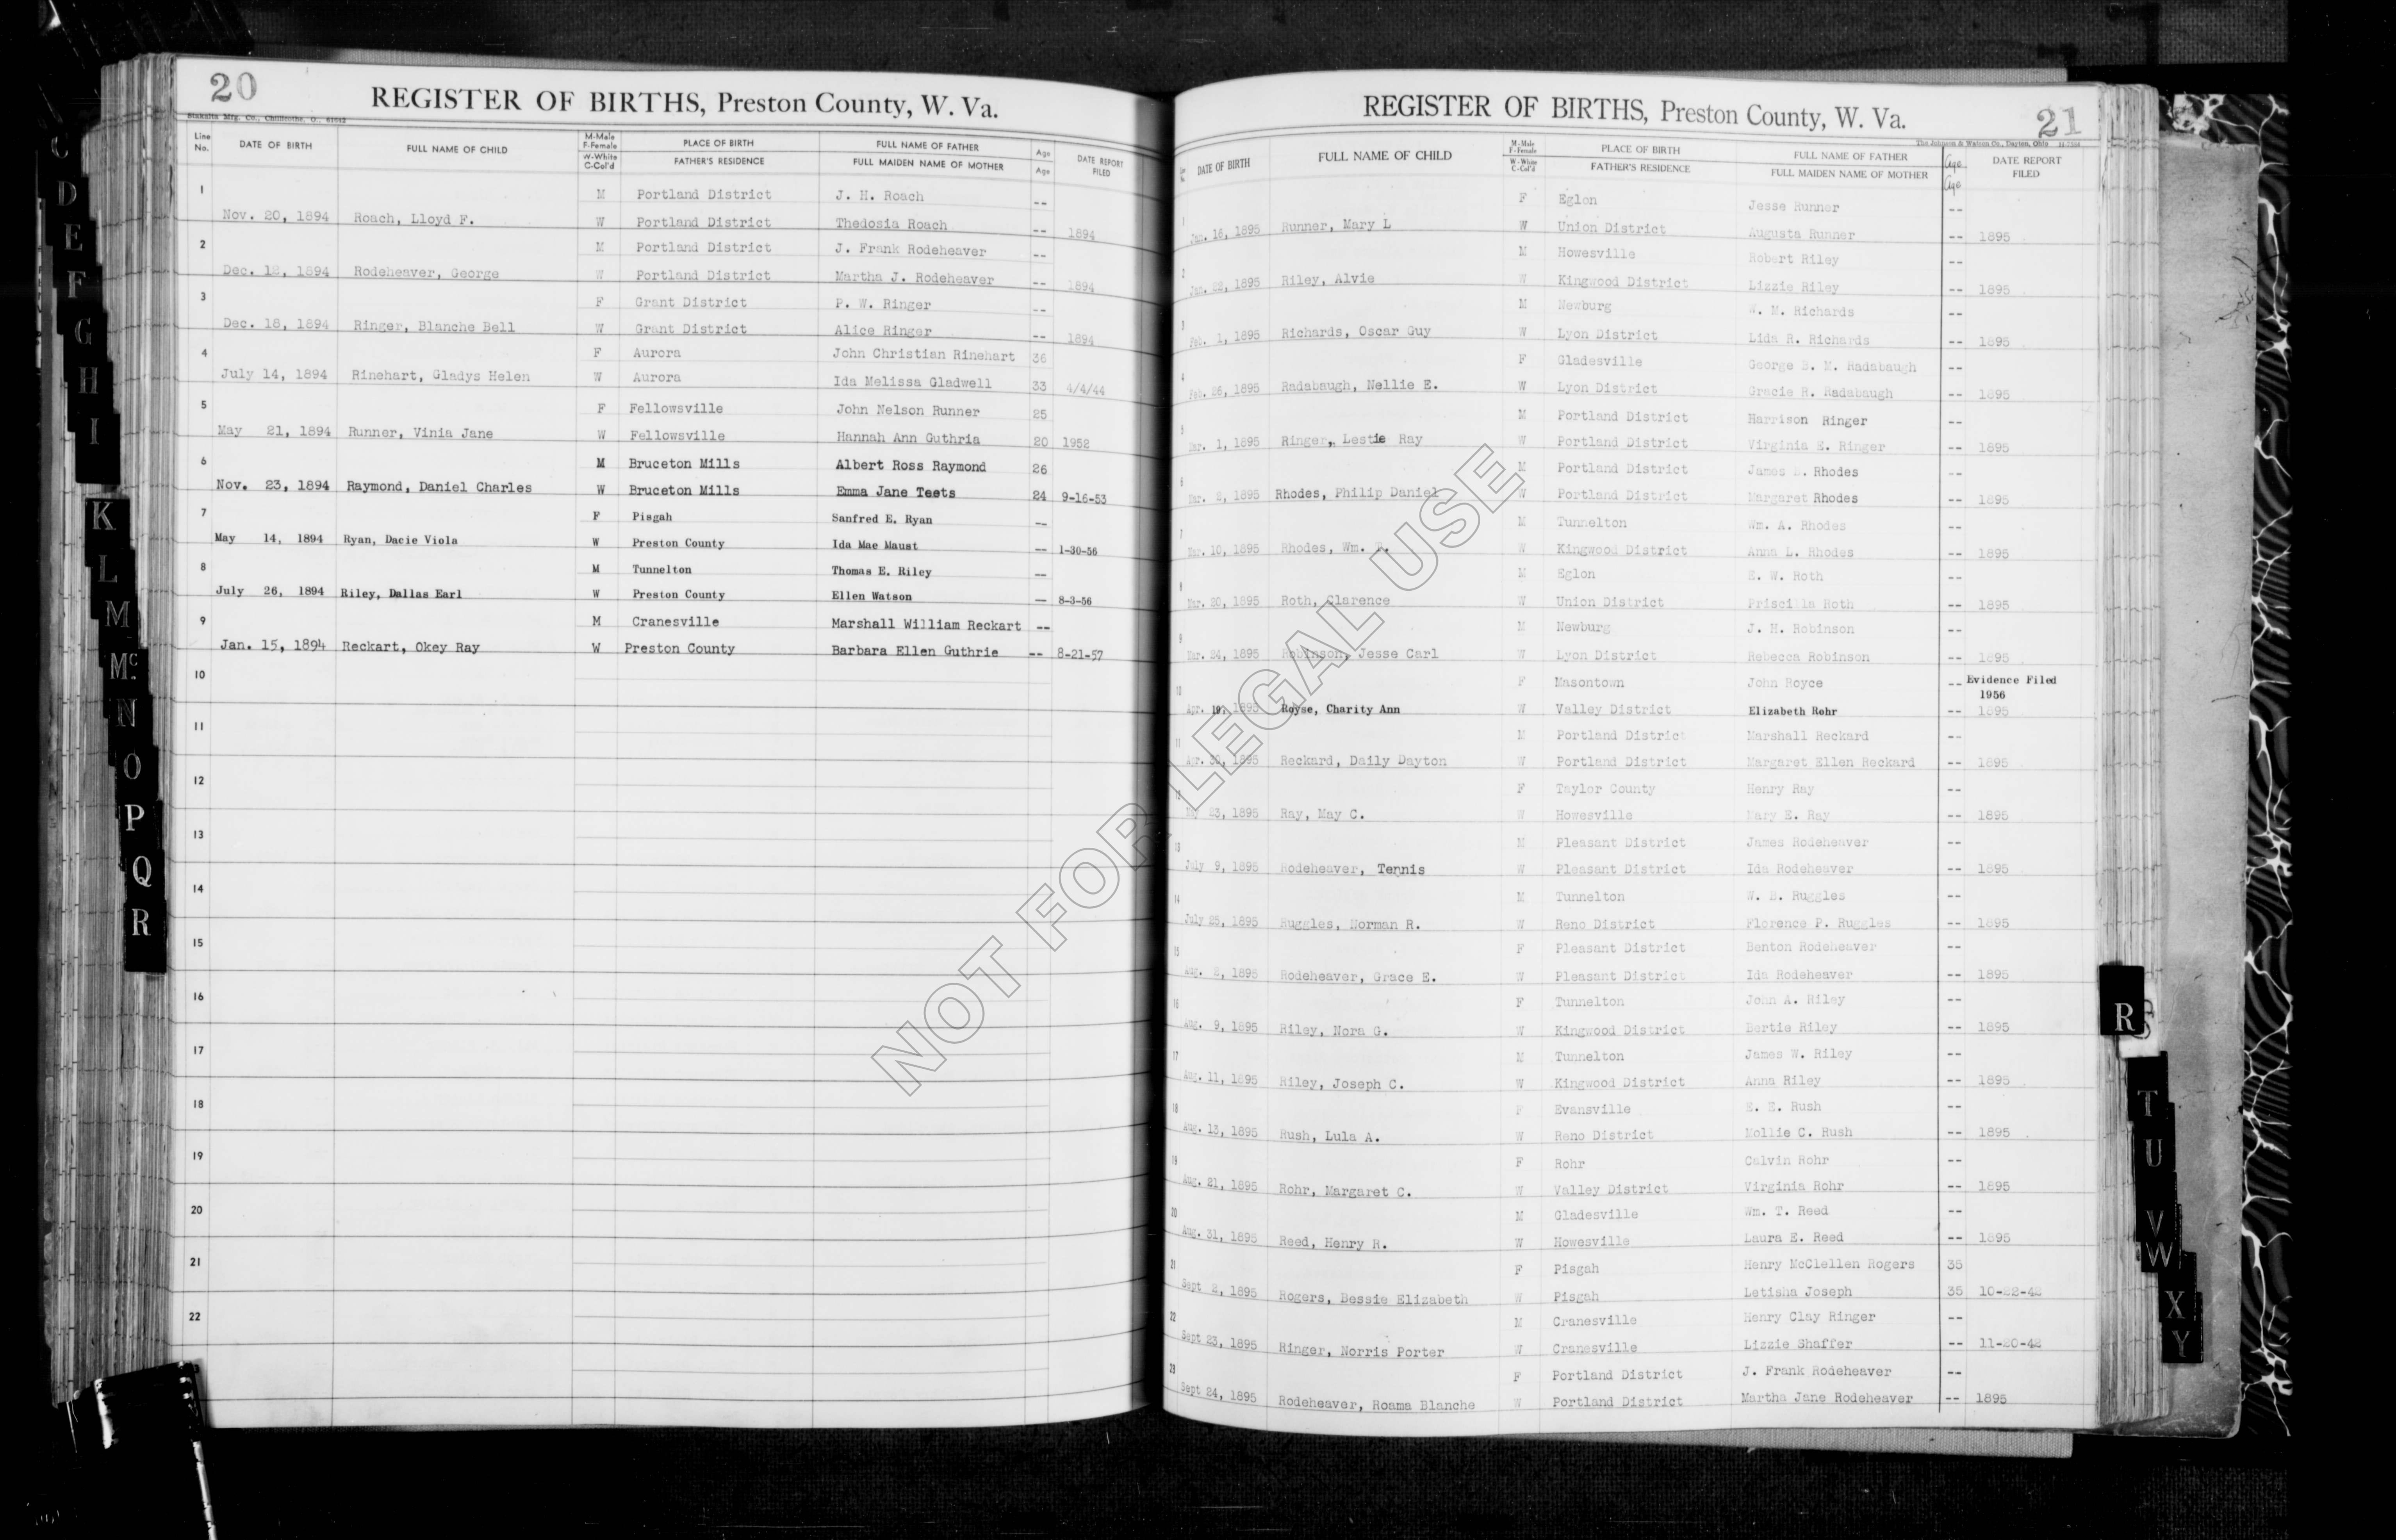 20
REGISTER OF BIRTHS, Preston County, W. Va.
Line No. DATE OF BIRTH FULL NAME OF CHILD M-Male F-Female W-White C-Col'd PLACE OF BIRTH FATHER'S RESIDENCE FULL NAME OF FATHER FULL MAIDEN NAME OF MOTHER Age Age DATE REPORT FILED
1 M Portland District J. H. Roach --
Nov. 20, 1894 Roach, Lloyd F. W Portland District Thedosia Roach -- 1894
2 M Portland District J. Frank Rodeheaver --
Dec. 12, 1894 Rodeheaver, George W Portland District Martha J. Rodeheaver -- 1894
3 F Grant District P. W. Ringer --
Dec. 18, 1894 Ringer, Blanche Bell W Grant District Alice Ringer -- 1894
4 F Aurora John Christian Rinehart 36
July 14, 1894 Rinehart, Gladys Helen W Aurora Ida Melissa Gladwell 33 4/4/44
5 F Fellowsville John Nelson Runner 25
May 21, 1894 Runner, Vinia Jane W Fellowsville Hannah Ann Guthria 20 1952
6 M Bruceton Mills Albert Ross Raymond 26
Nov. 23, 1894 Raymond, Daniel Charles W Bruceton Mills Emma Jane Teets 24 9-16-53
7 F Pisgah Sanfred E. Ryan --
May 14, 1894 Ryan, Dacie Viola W Preston County Ida Mae Maust -- 1-30-56
8 M Tunnelton Thomas E. Riley --
July 26, 1894 Riley, Dallas Earl W Preston County Ellen Watson -- 8-3-56
9 M Cranesville Marshall William Reckart --
Jan. 15, 1894 Reckart, Okey Ray W Preston County Barbara Ellen Guthrie -- 8-21-57
10
11
12
13
14
15
16
17
18
19
20
21
22
21
REGISTER OF BIRTHS, Preston County, W. Va.
The Johnson & Watson Co., Dayton, Ohio
DATE OF BIRTH FULL NAME OF CHILD M-Male F-Female W-White C-Col'd PLACE OF BIRTH FATHER'S RESIDENCE FULL NAME OF FATHER FULL MAIDEN NAME OF MOTHER Age Age DATE REPORT FILED
1 F Eglon Jesse Runner --
Jan. 16, 1895 Runner, Mary L W Union District Augusta Runner -- 1895
2 M Howesville Robert Riley --
Jan. 22, 1895 Riley, Alvie W Kingwood District Lizzie Riley -- 1895
3 M Newburg W. M. Richards --
Feb. 1, 1895 Richards, Oscar Guy W Lyon District Lida R. Richards -- 1895
4 F Gladesville George S. M. Radabaugh --
Feb. 26, 1895 Radabaugh, Nellie E. W Lyon District Gracie R. Radabaugh -- 1895
5 M Portland District Harrison Ringer --
Mar. 1, 1895 Ringer, Lestie Ray W Portland District Virginia E. Ringer -- 1895
6 M Portland District James Rhodes --
Mar. 2, 1895 Rhodes, Philip Daniel W Portland District Margaret Rhodes -- 1895
7 M Tunnelton Wm. A. Rhodes --
Mar. 10, 1895 Rhodes, Wm. R. W Kingwood District Anna L. Rhodes -- 1895
8 M Eglon E. W. Roth --
Mar. 20, 1895 Roth, Clarence W Union District Priscilla Roth -- 1895
9 M Newburg J. H. Robinson --
Mar. 24, 1895 Robinson, Jesse Carl W Lyon District Rebecca Robinson -- 1895
10 F Masontown John Royce -- Evidence Filed 1956
Apr. 19, 1895 Royse, Charity Ann W Valley District Elizabeth Rohr -- 1895
11 M Portland District Marshall Reckard --
Apr. 30, 1895 Reckard, Daily Dayton W Portland District Margaret Ellen Reckard -- 1895
12 F Taylor County Henry Ray --
May 23, 1895 Ray, May C. W Howesville Mary E. Ray -- 1895
13 M Pleasant District James Rodeheaver --
July 9, 1895 Rodeheaver, Tennis W Pleasant District Ida Rodeheaver -- 1895
14 M Tunnelton W. B. Ruggles --
July 25, 1895 Ruggles, Norman R. W Reno District Florence P. Ruggles -- 1895
15 F Pleasant District Benton Rodeheaver --
Aug. 2, 1895 Rodeheaver, Grace E. W Pleasant District Ida Rodeheaver -- 1895
16 F Tunnelton John A. Riley --
Aug. 9, 1895 Riley, Nora G. W Kingwood District Bertie Riley -- 1895
17 M Tunnelton James W. Riley --
Aug. 11, 1895 Riley, Joseph C. W Kingwood District Anna Riley -- 1895
18 F Evansville E. E. Rush --
Aug. 13, 1895 Rush, Lula A. W Reno District Mollie C. Rush -- 1895
19 F Rohr Calvin Rohr --
Aug. 21, 1895 Rohr, Margaret C. W Valley District Virginia Rohr -- 1895
20 M Gladesville Wm. T. Reed --
Aug. 31, 1895 Reed, Henry R. W Howesville Laura E. Reed -- 1895
21 F Pisgah Henry McClellen Rogers 35
Sept 2, 1895 Rogers, Bessie Elizabeth W Pisgah Letisha Joseph 35 10-22-42
22 M Cranesville Henry Clay Ringer --
Sept 23, 1895 Ringer, Norris Porter W Cranesville Lizzie Shaffer -- 11-20-42
23 F Portland District J. Frank Rodeheaver --
Sept 24, 1895 Rodeheaver, Roama Blanche W Portland District Martha Jane Rodeheaver -- 1895
NOT FOR LEGAL USE
C
D
E
F
G
H
I
K
L
M
Mc
N
O
P
Q
R
R
T
U
V
W
X
Y